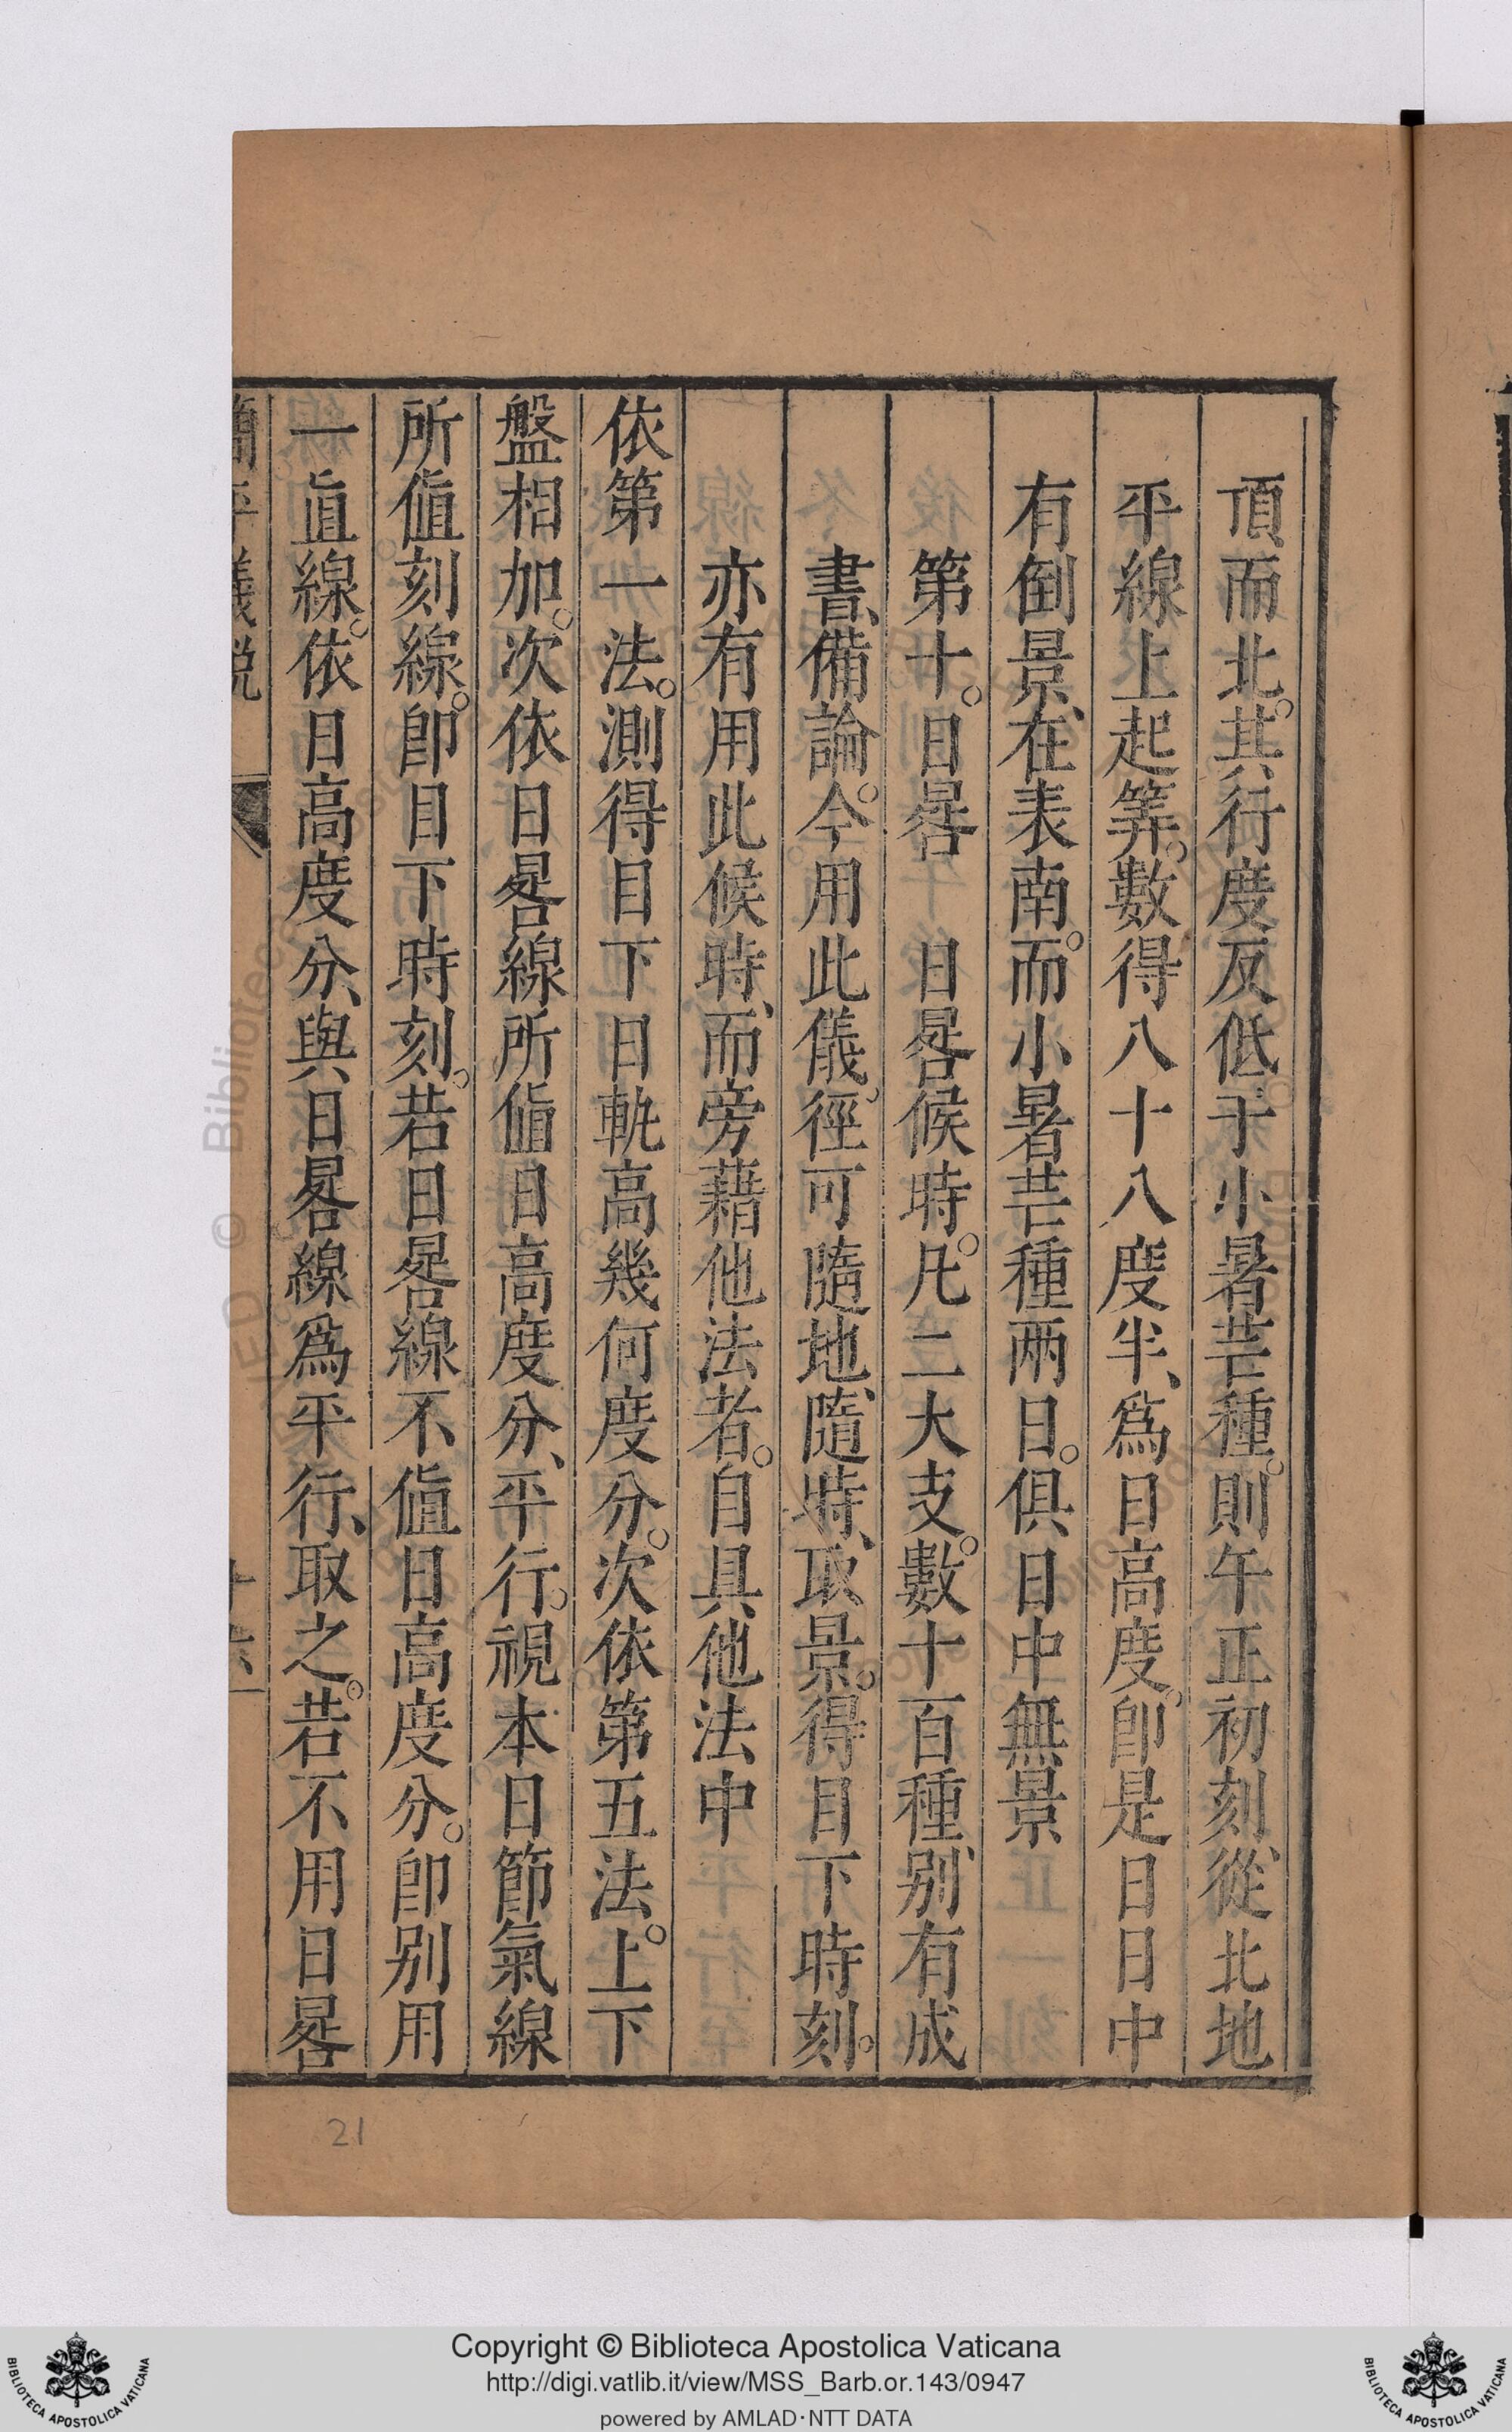 頂、而北。其行度反低于小暑芒種。則午正初刻、從北地
平線上起筭。數得八十八度半、爲日高度。卽是日日中
有倒景、在表南。而小暑芒種兩日。俱日中無景
第十。日晷　日晷候時。凡二大支。數十百種、別有成
書、備論。今用此儀。徑可隨地、隨時、取景。得目下時刻。
亦有用此候時、而旁藉他法者。自具他法中
依第一法。測得目下日軌高幾何度分。次依第五法。上下
盤相加。次依日晷線所值日高度分、平行。視本日節氣線
所值刻線。卽目下時刻。若日晷線不值日高度分。卽別用
一直線。依日高度分、與日晷線爲平行、取之。若不用日晷
簡平儀說
21
© Biblioteca
Copyright © Biblioteca Apostolica Vaticana
http://digi.vatlib.it/view/MSS_Barb.or.143/0947
powered by AMLAD·NTT DATA
BIBLIOTECA APOSTOLICA VATICANA
BIBLIOTECA APOSTOLICA VATICANA